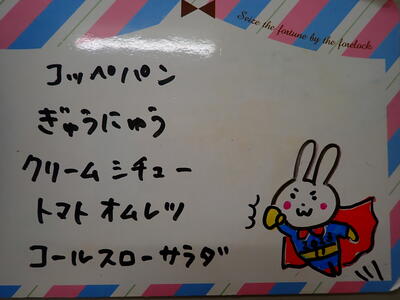 Seize the fortune by the forelock
コッペパン
ぎゅうにゅう
クリームシチュー
トマトオムレツ
コールスローサラダ